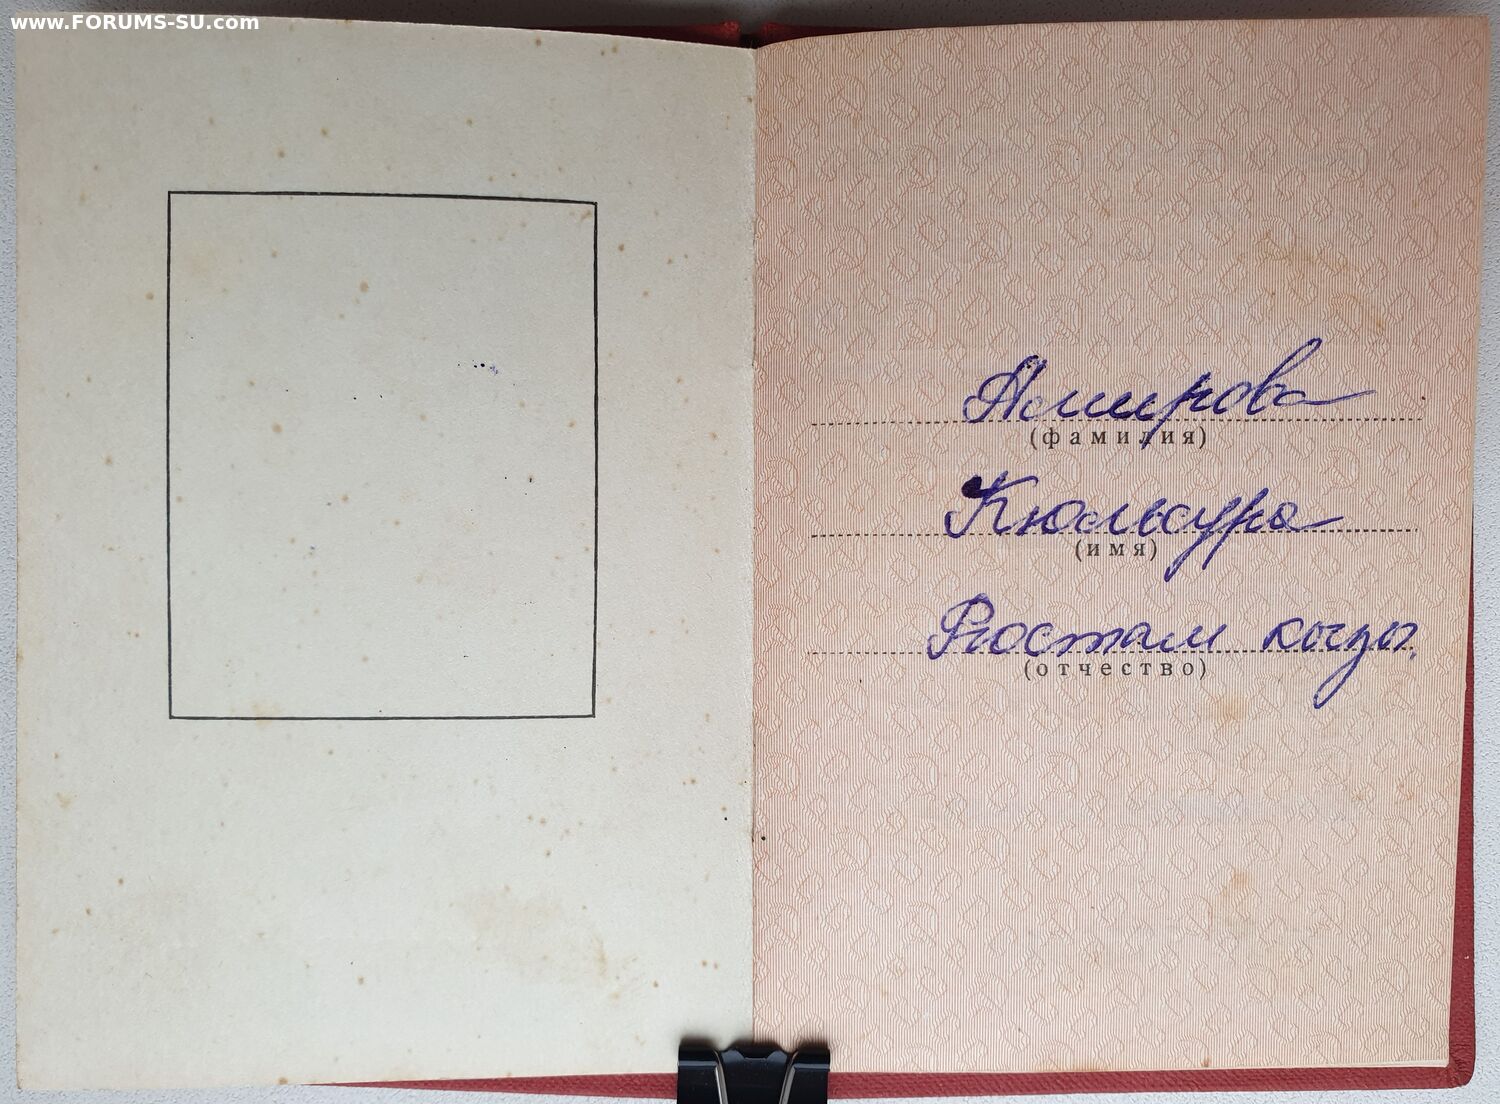 www.FORUMS-SU.com
Амирова
(фамилия)
Кюльсура
(имя)
Ростам кызы
(отчество)